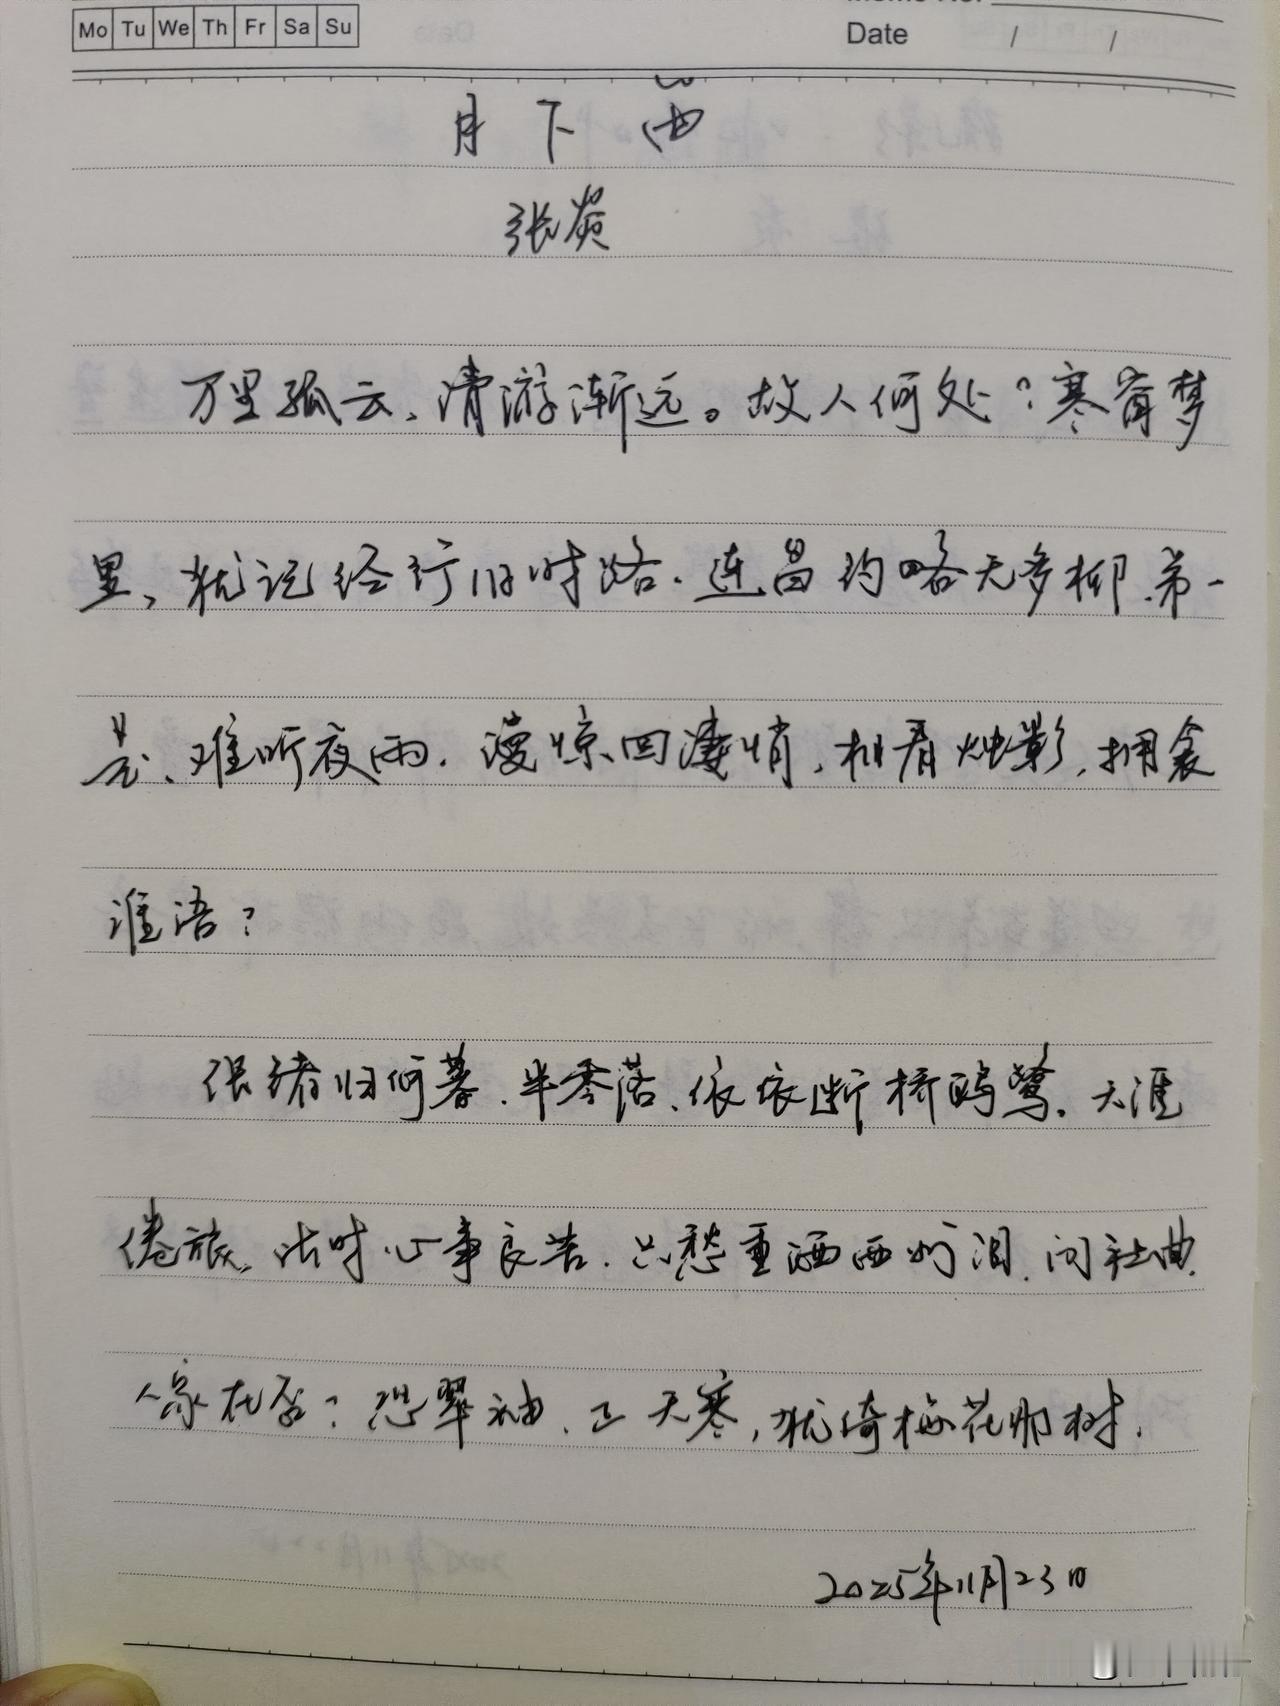 Mo Tu We Th Fr Sa Su
Date / /
月下笛
张炎
万里孤云,清游渐远。故人何处?寒窗梦
里,犹记经行旧时路.连昌约略无多柳.第一
是、难听夜雨.漫惊回凄悄,相看烛影,拥衾
谁语?
张绪归何暮.半零落、依依断桥鸥鹭.天涯
倦旅,此时心事良苦.只愁重洒西州泪.问杜曲
人家在否?恐翠袖、正天寒,犹倚梅花那树.
2025年11月23日